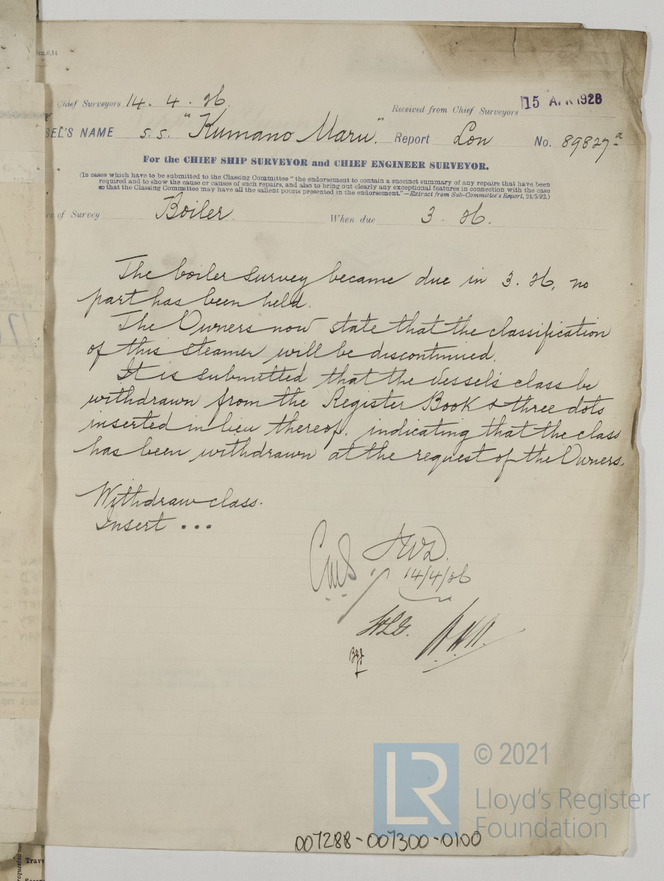 Chief Surveyors 14. 4. 26.
Received from Chief Surveyors 15 APR 1926
SEL'S NAME s.s. "Kumano Maru". Report Lon No. 89827a
For the CHIEF SHIP SURVEYOR and CHIEF ENGINEER SURVEYOR.
(In cases which have to be submitted to the Classing Committee "the endorsement to contain a succinct summary of any repairs that have been
required and to show the cause or causes of such repairs, and also to bring out clearly any exceptional features in connection with the case
so that the Classing Committee may have all the salient points presented in the endorsement."—Extract from Sub-Committee's Report, 24/5/92.)
of Survey Boiler When due 3. 26.
The boiler survey became due in 3. 26, no
part has been held.
The Owners now state that the classification
of this steamer will be discontinued.
It is submitted that the vessel's class be
withdrawn from the Register Book & three dots
inserted in lieu thereof, indicating that the class
has been withdrawn at the request of the Owners.
Withdraw class.
Insert ...
14/4/26
LR © 2021
Lloyd's Register
Foundation
007288-007300-0100